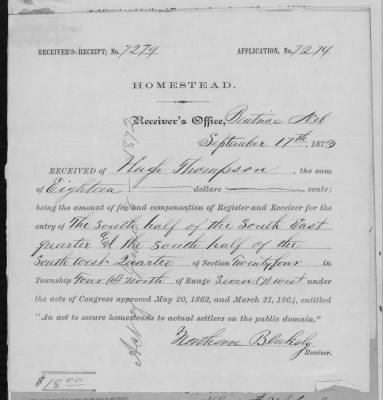 RECEIVER'S-RECEIPT; No. 7274 APPLICATION, No. 7274
HOMESTEAD.
Receiver's Office, Beatrice Neb
September 17th 1873
RECEIVED of Hugh Thompson, the sum
of Eighteen dollars cents;
being the amount of fee and compensation of Register and Receiver for the
entry of The South half of the South East
quarter & the South half of the
South West Quarter of Section Twenty four in
Township Four (4) North of Range Seven (7) west under
the acts of Congress approved May 20, 1862, and March 21, 1864, entitled
"An act to secure homesteads to actual settlers on the public domain."
Nathan Blakely
Receiver.
$18.00
Act of